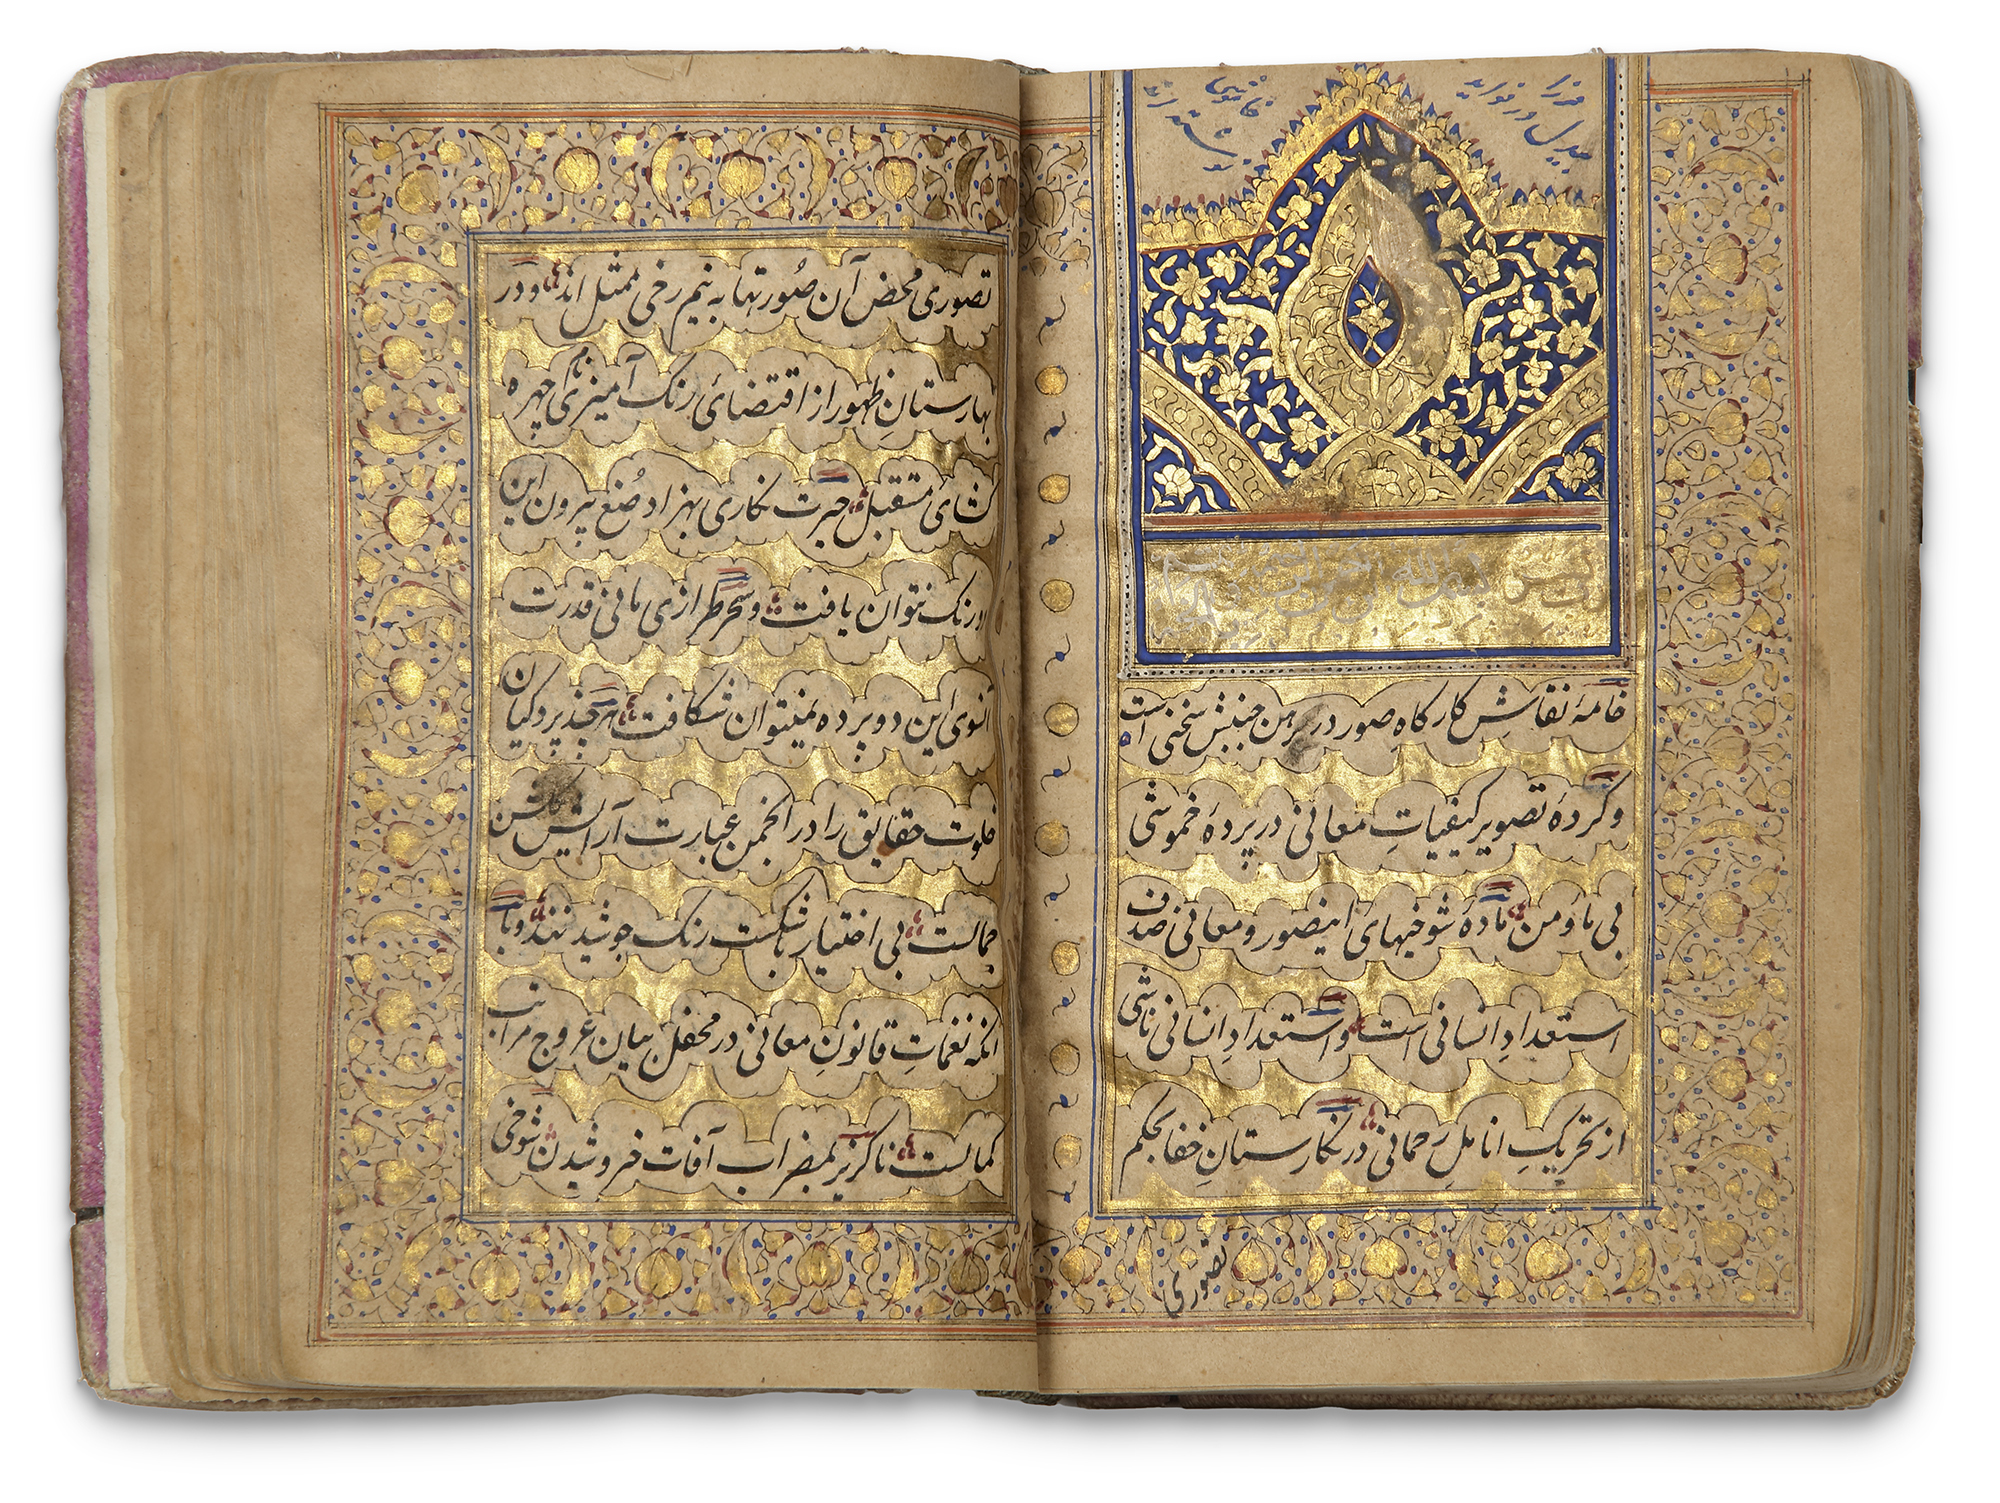 مرزا
بیدل در فواید
خاموشی
نوشته اند
بسم الله الرحمن الرحیم
خامهٔ نقاشِ کارکاهِ صور در رهن جنبش سخنی است
و کردهٔ تصویر کیفیاتِ معانی در پردهٔ خموشی
بی ما و من مادهٔ شوخیهای اینصور و معانی صدف
استعدادِ انسانی است و استعدادِ انسانی ناشی
از تحریکِ اناملِ رحمانی در نکارستانِ خفا بحکم
تصوری
تصوری محض آن صُورتها به نیم رخی ممثل اند و در
بهارستانِ ظهور از اقتضائ رنک آمیزی چهره
کشای مستقبل حیرت نکاری بهزاد صُنع بیرون این
دو رنک نتوان یافت و سحر طرازی مانی قدرت
آنسوی این دو پرده نمیتوان شکافت هرچند پردکیان
خلوت حقایق را در انجمن عبارت آرایش
جمالست بی اختیار با شکست رنک جوشیدنند و با
آنکه نغماتِ قانونِ معانی در محفل بیان عروج مراتب
کمالست ناکزیر بمضراب آفات خروشیدن شوخی